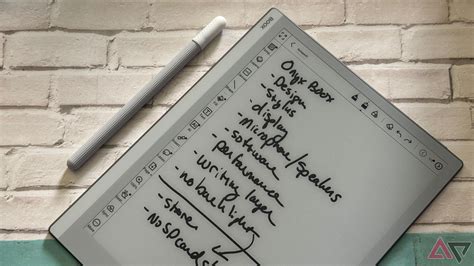 BOOX
Onyx Boox
- Design
- Stylus
- display
- Microphone/speakers
- software
performance
- Writing layer
- no backlight
- store
- No SD card s